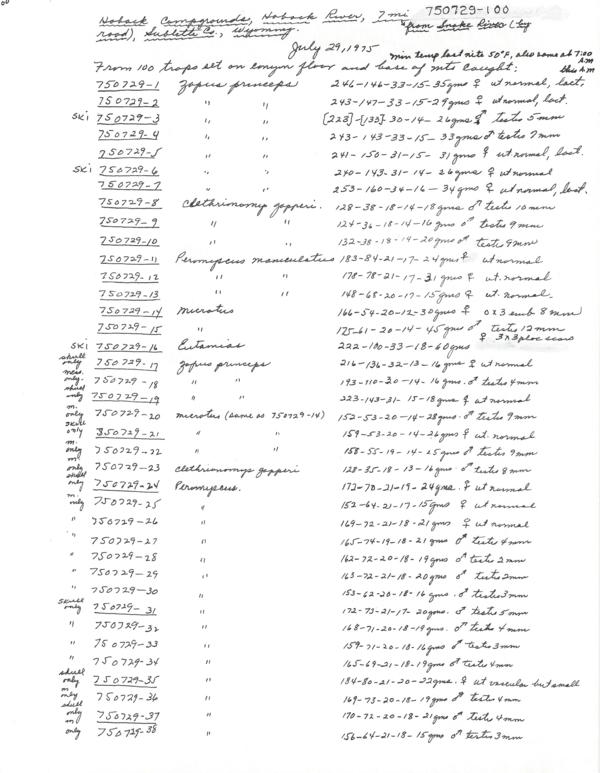 750729-100
Hoback Campgrounds, Hoback River, 7 mi from Snake River (by
road), Sublette Co., Wyoming.
July 29, 1975
min temp last nite 50°F, also same at 7:00 AM this A.M
From 100 traps set on canyon floor and base of mts caught:
750729-1 Zapus princeps 246-146-33-15-35gms ♀ ut normal, lact.
750729-2 " " 243-147-33-15-29gms ♀ ut normal, lact.
SKI 750729-3 " " [223]-[133]-30-14-26gms ♂ testis 5mm
750729-4 " " 243-143-33-15-33gms ♂ testis 7mm
750729-5 " " 241-150-31-15-31gms ♀ ut normal, lact.
SKI 750729-6 " " 240-143-31-14-26gms ♀ ut normal
750729-7 " " 253-160-34-16-34gms ♀ ut normal, lact.
750729-8 Clethrionomys gapperi. 128-38-18-14-18gms ♂ testis 10mm
750729-9 " " 124-36-18-14-16gms ♂ testis 9mm
750729-10 " " 132-38-18-14-20gms ♂ testis 9mm
750729-11 Peromyscus maniculatus 183-84-21-17-24gms ♀ ut normal
750729-12 " " 178-78-21-17-31gms ♀ ut. normal
750729-13 " " 148-68-20-17-15gms ♀ ut. normal.
750729-14 Microtus 166-54-20-12-30gms ♀ 0x3 emb 8mm
750729-15 " 175-61-20-14-45gms ♂ testis 12mm
SKI 750729-16 Eutamias 222-100-33-18-60gms ♀ 3x3 plac scars
skull only 750729-17 Zapus princeps 216-136-32-13-16gms ♀ ut normal
meas. only. 750729-18 " " 193-110-30-14-16gms. ♂ testis 4mm
skull only 750729-19 " " 223-143-31-15-18gms ♀ ut normal
m. only 750729-20 Microtus (same as 750729-14) 152-53-20-14-28gms. ♂ testis 9mm
skull only 750729-21 " " 159-53-20-14-26gms ♀ ut. normal
m. only 750729-22 " " 158-55-19-14-25gms ♂ testis 9mm
m. only 750729-23 Clethrionomys gapperi 128-35-18-13-16gms ♂ testis 8mm
skull only 750729-24 Peromyscus. 172-70-21-19-24gms. ♀ ut normal
m. only 750729-25 " 152-64-21-17-15gms ♀ ut normal
" 750729-26 " 169-72-21-18-21gms ♀ ut normal
" 750729-27 " 165-74-19-18-21gms ♂ testis 4mm
" 750729-28 " 162-72-20-18-19gms ♂ testis 2mm
" 750729-29 " 163-72-21-18-20gms ♂ testis 2mm
" 750729-30 " 153-62-20-18-16gms. ♂ testis 3mm
skull only 750729-31 " 172-73-21-17-20gms. ♂ testis 5mm
" 750729-32 " 168-71-20-18-19gms. ♂ testis 4mm
" 750729-33 " 159-71-20-18-16gms ♂ testis 3mm
" 750729-34 " 165-69-21-18-19gms ♂ testis 4mm
skull only 750729-35 " 184-80-21-20-22gms. ♀ ut vascular but small
m only 750729-36 " 169-73-20-18-19gms ♂ testis 4mm
skull only 750729-37 " 170-72-20-18-21gms ♂ testis 4mm
m only 750729-38 " 156-64-21-18-15gms ♂ testis 3mm